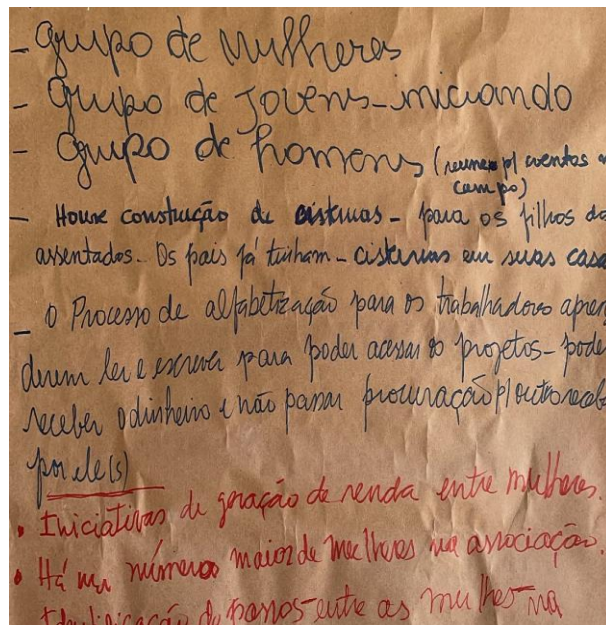 - Grupo de mulheres
- Grupo de Jovens-iniciando
- Grupo de homens (reunem p/ eventos
campo)
- Houve construção de cisternas - para os filhos do
assentados. Os pais já tinham - cisternas em suas casa
- O Processo de alfabetização para os trabalhadores apren
derem ler e escrever para poder acessar os projetos - pode
receber o dinheiro e não passar procuração p/ outro receb
por ele(s)
• Iniciativas de geração de renda entre mulheres.
• Há um número maior de mulheres na associação.
Identificação de passos entre as mulheres na